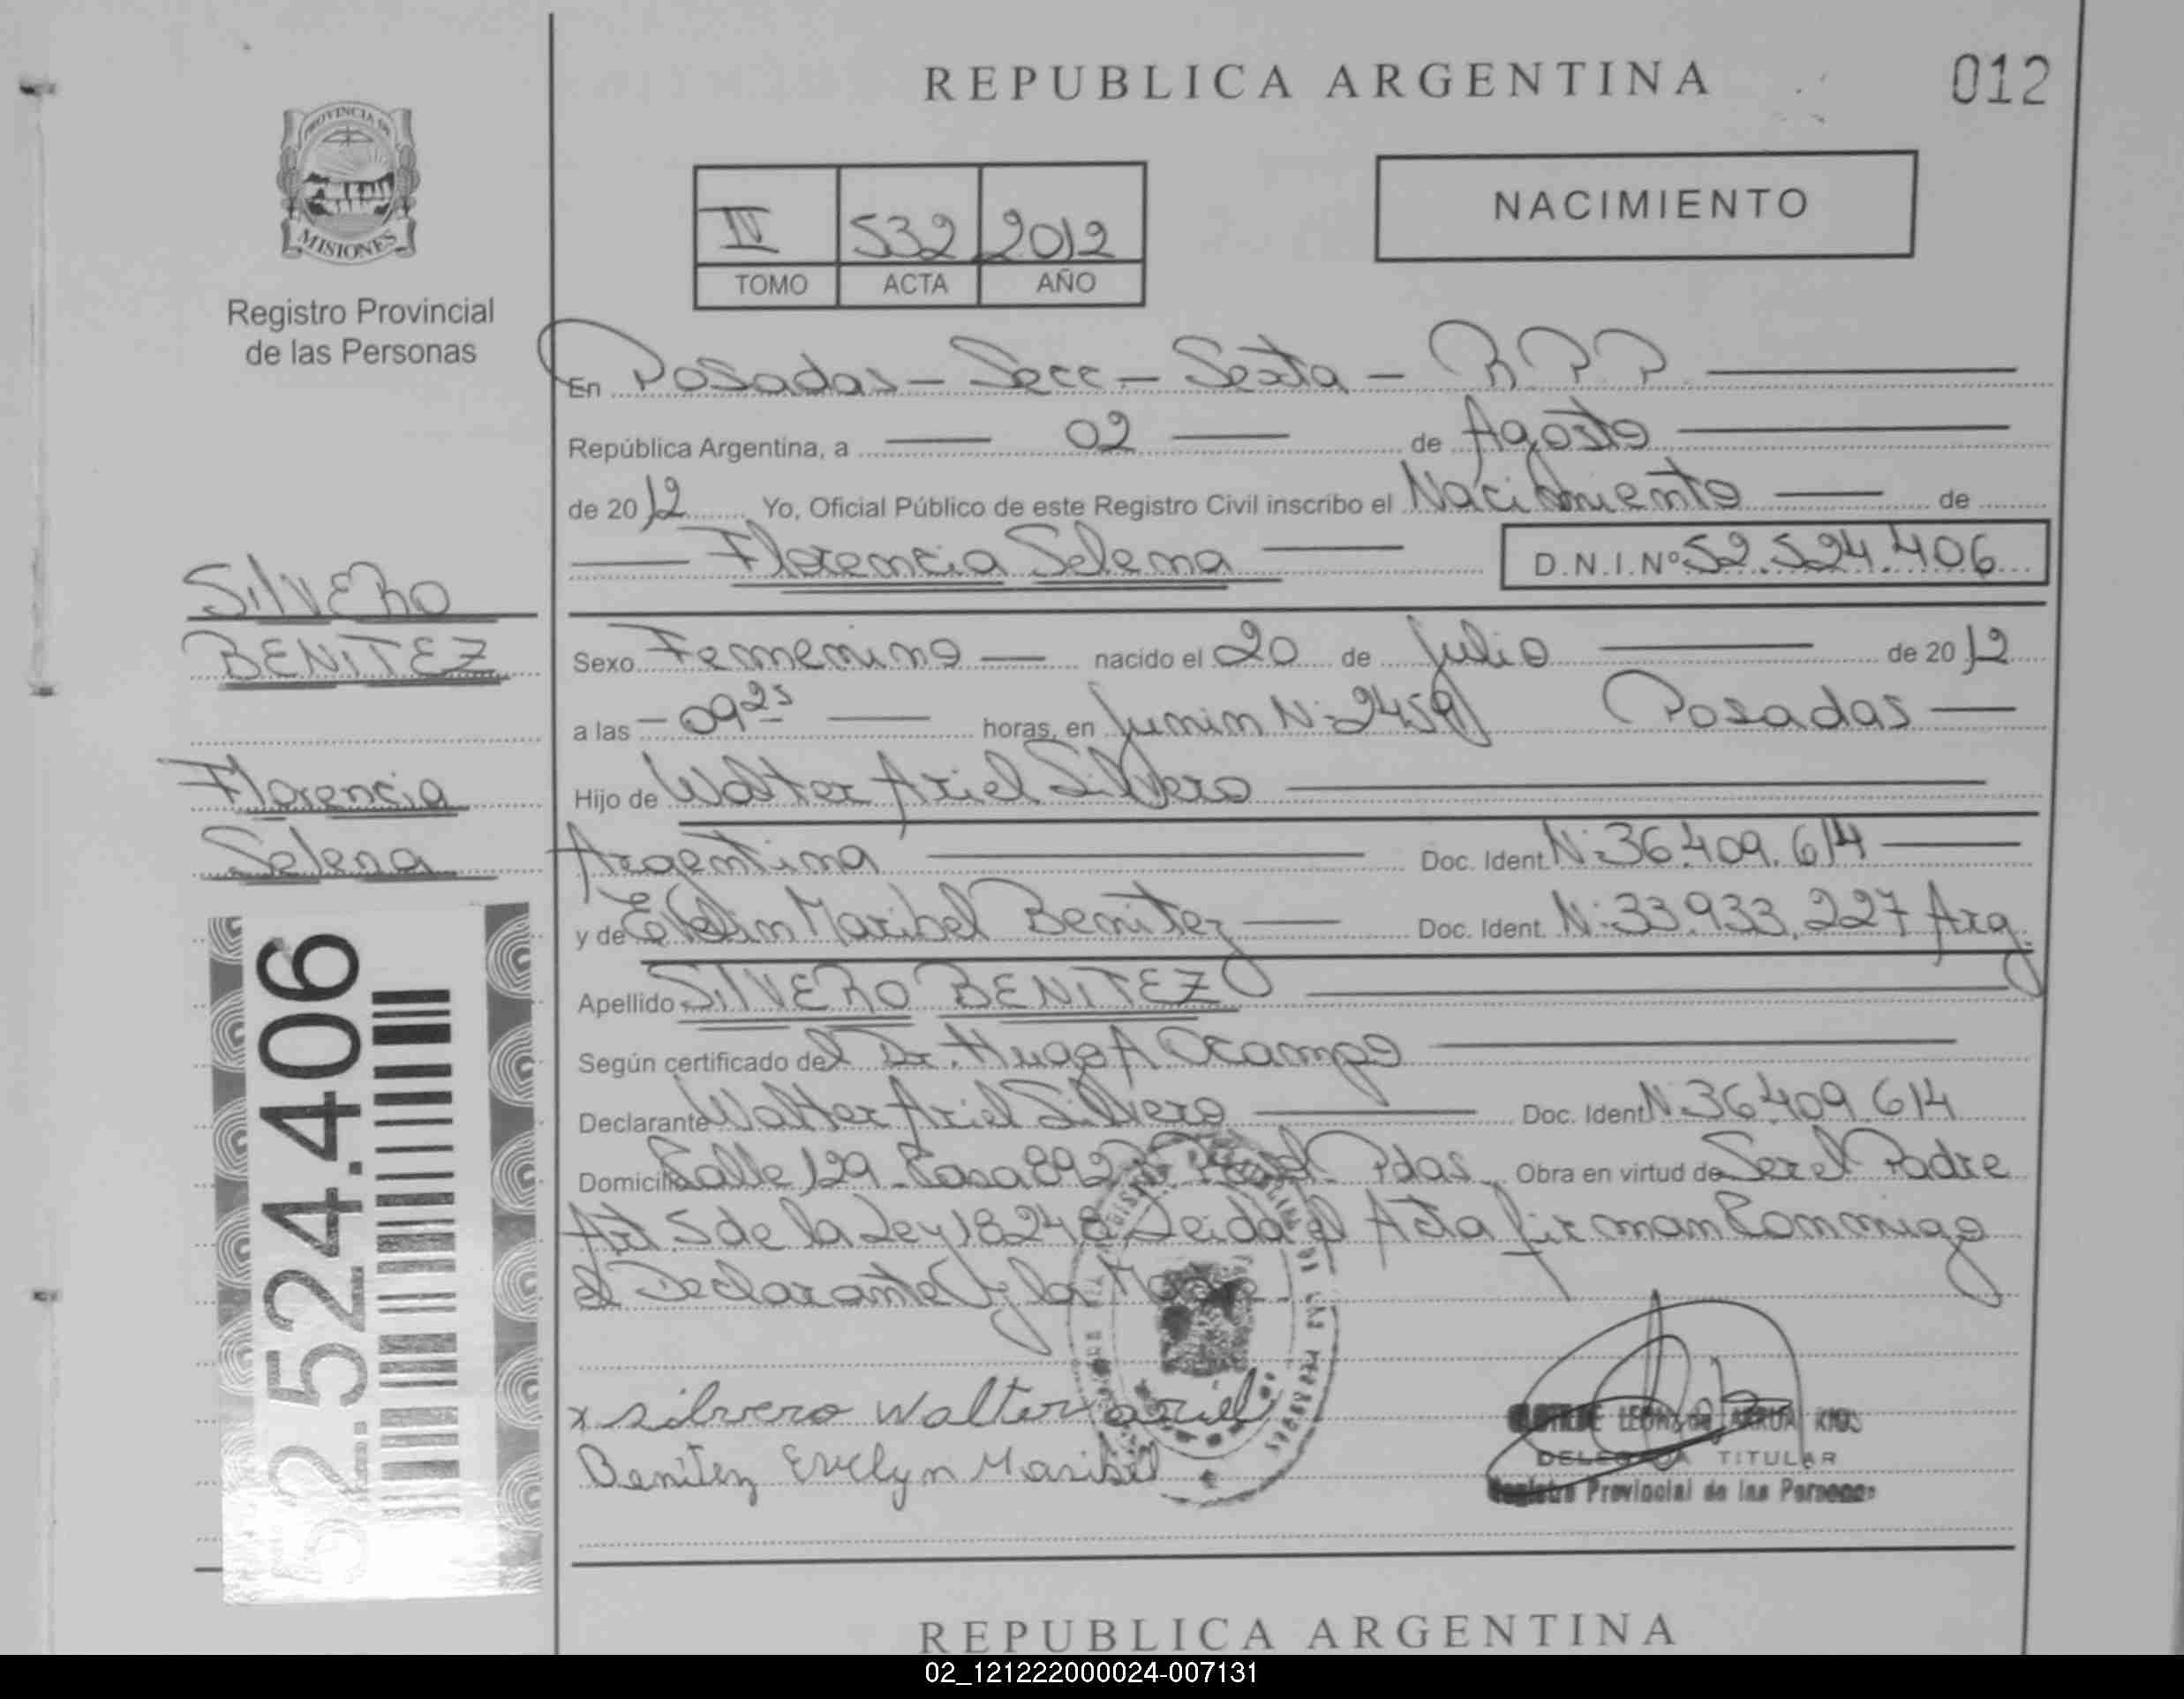 REPUBLICA ARGENTINA
012
PROVINCIA DE
MISIONES
Registro Provincial
de las Personas
NACIMIENTO
IV 532 2012
TOMO ACTA AÑO
En Posadas - Secc - Sexta - R P P
República Argentina, a 02 de Agosto
de 2012 Yo, Oficial Público de este Registro Civil inscribo el Nacimiento de
Florencia Selena D.N.I. Nº 52.524.406
SILVERO
BENITEZ
Florencia
Selena
Sexo Femenino nacido el 20 de Julio de 2012
a las 09 25 horas, en Junin N: 2459 Posadas
Hijo de Walter Ariel Silvero
Argentina Doc. Ident. N: 36.409.614
y de Evelin Maribel Benitez Doc. Ident. N: 33.933.227 Arg.
Apellido SILVERO BENITEZ
Según certificado del Dr. Hugo A Ocampo
Declarante Walter Ariel Silvero Doc. Ident N: 36.409.614
Domicilio Calle 129 Casa 892 Pdas. Obra en virtud de Ser el Padre
Art. 5 de la Ley 18248 Leida el Acta firman Conmigo
el Declarante y la
x silvero Walter ariel
Benitez Evelyn Maribel
TITULAR
Registro Provincial de las Personas
52.524.406
REPUBLICA ARGENTINA
02_121222000024-007131